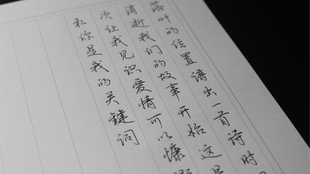 落叶的位置谱出一首诗时
消逝我们的故事开始这是
次让我见识爱情可以慷
私你是我的关键词